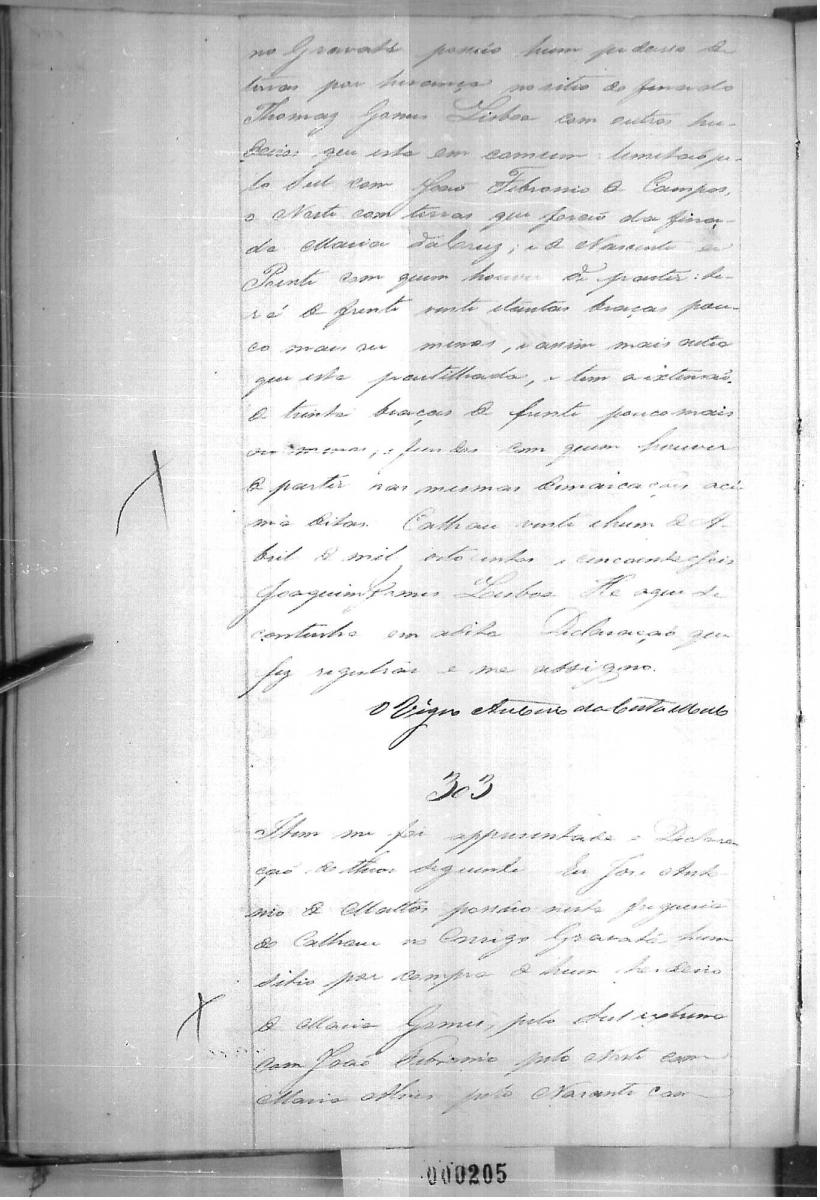 no Gravatá possuo hum pedasso de
terras por herança no sitio do finado
Thomaz Gomes Lisboa com outros her-
deiros que esta em comum: limita-se pe-
lo Sul com João Febronio de Campos,
o Norte com terras que forão da fina-
da Maria da Cruz; e o Nascente e
Poente com quem houver de partir: te-
rá de frente vinte e tantas braças pou-
co mais ou menos, e assim mais outra
que esta partilhada, e tem a extensão
de trinta braças de frente pouco mais
ou menos, e fundos com quem houver
de partir nas mesmas demarcações aci-
ma ditas. Calhau vinte e hum de A-
bril de mil oitocentos e cincoenta e seis
Joaquim Gomes Lisboa He o que se
continha em a dita Declaração que
fez registrar e me assigno.
O Vigro Antonio da Costa
303
Item me foi appresentada a Declara-
ção do theor seguinte Eu José Anto-
nio de Mattos possuo nesta freguesia
do Calhau no Corrigo Gravatá hum
sitio por compra de hum herdeiro
de Maria Gomes, pelo Sul extrema
com João Febronio pelo Norte com
Maria Alves pelo Nascente com
000205